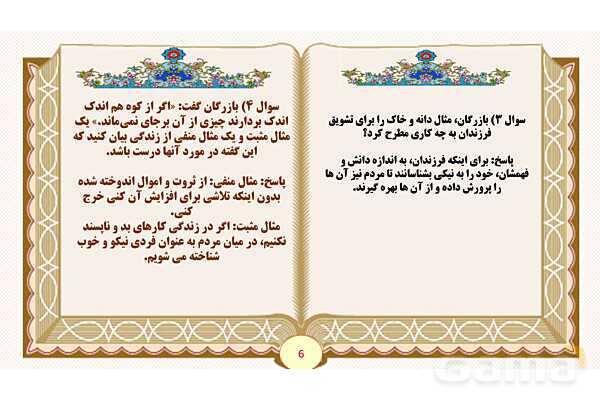 سوال ۳) بازرگان، مثال دانه و خاک را برای تشویق
فرزندان به چه کاری مطرح کرد؟
پاسخ: برای اینکه فرزندان، به اندازه دانش و
فهمشان، خود را به نیکی بشناسانند تا مردم نیز آن ها
را پرورش داده و از آن ها بهره گیرند.
سوال ۴) بازرگان گفت: «اگر از کوه هم اندک
اندک بردارند چیزی از آن برجای نمی‌ماند.» یک
مثال مثبت و یک مثال منفی از زندگی بیان کنید که
این گفته در مورد آنها درست باشد.
پاسخ: مثال منفی: از ثروت و اموال اندوخته شده
بدون اینکه تلاشی برای افزایش آن کنی خرج
کنی.
مثال مثبت: اگر در زندگی کارهای بد و ناپسند
نکنیم، در میان مردم به عنوان فردی نیکو و خوب
شناخته می شویم.
6
Gama